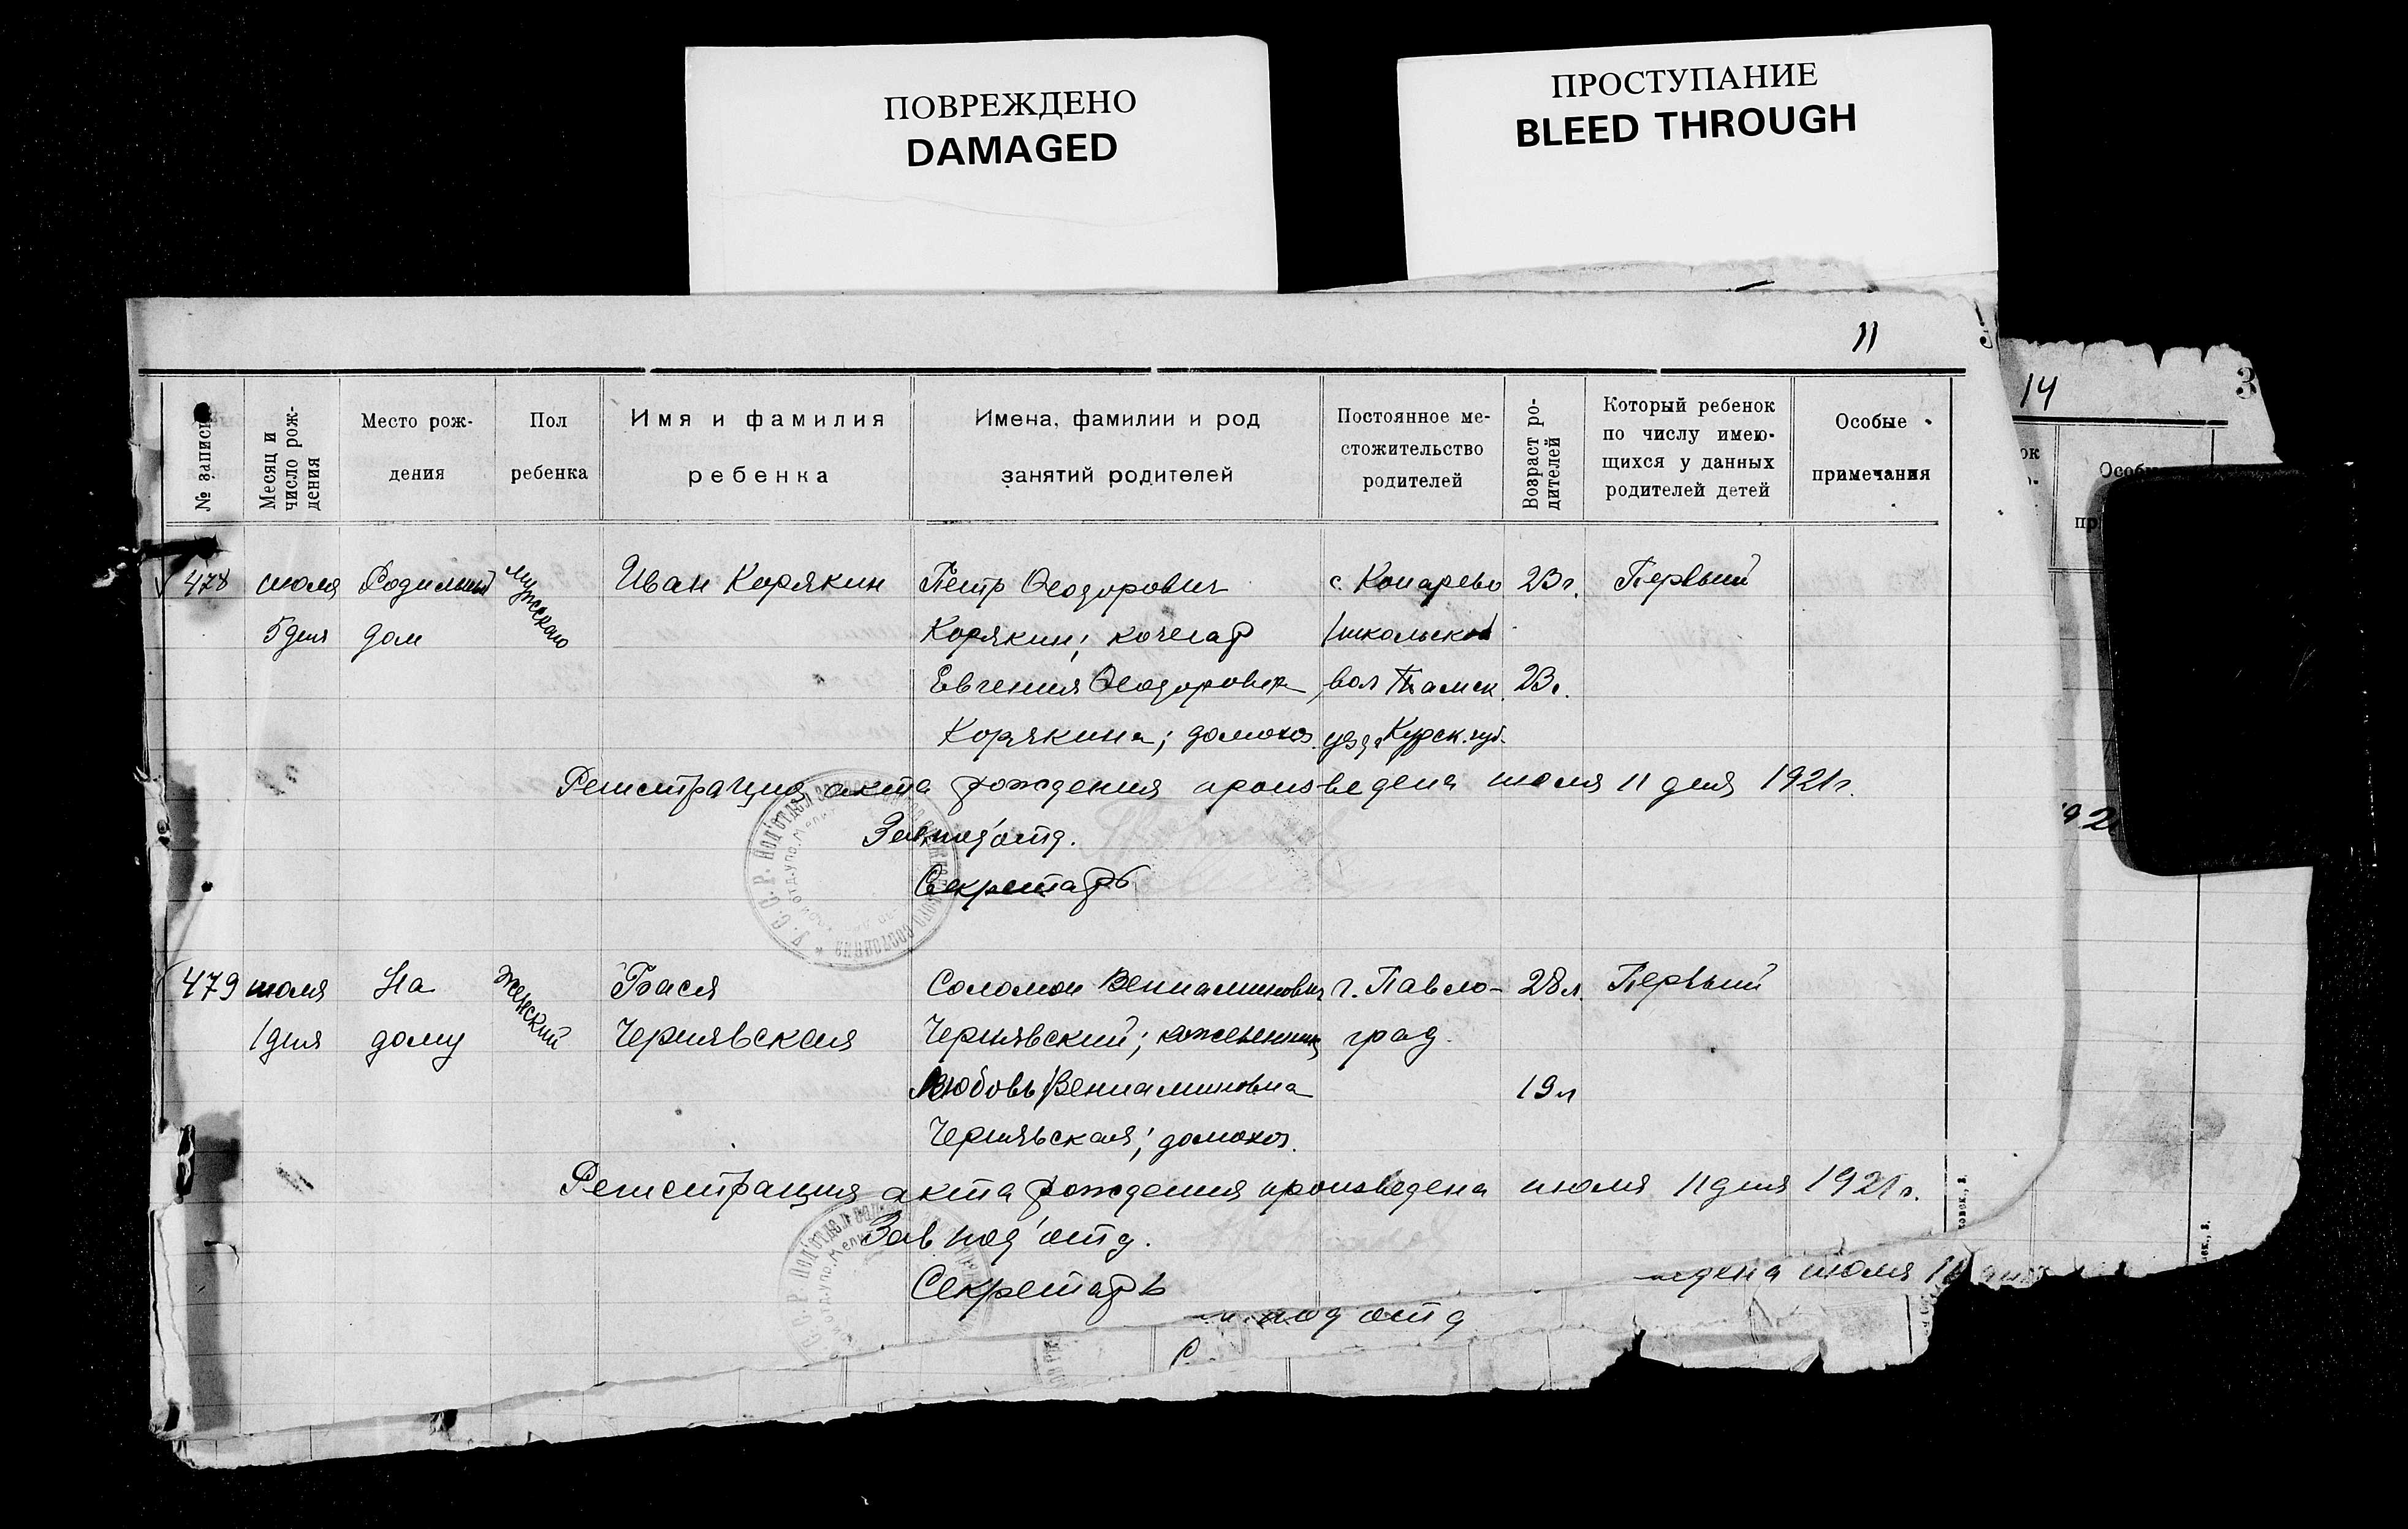 ПОВРЕЖДЕНО
DAMAGED
ПРОСТУПАНИЕ
BLEED THROUGH
11
14
3
№ записи
Месяц и число рождения
Место рож-
дения
Пол
ребенка
Имя и фамилия
ребенка
Имена, фамилии и род
занятий родителей
Постоянное ме-
стожительство
родителей
Возраст ро-
дителей
Который ребенок
по числу имею-
щихся у данных
родителей детей
Особые
примечания
478 июля Родильный мужского Иван Корякин Петр Феодорович с. Конарево 23 г. Первый
5 дня дом Корякин; кочегар
Евгения Феодоровна вол 23 г.
Корякина; домохоз. уезда Курск. губ.
Регистрация акта рождения произведена июля 11 дня 1921 г.
Зав под'отд.
Секретарь
479 июля На женский Бася Соломон Вениаминович г. Павло- 28 л. Первый
1 дня дому Чернявская Чернявский; кожевенник град.
Любовь Вениаминовна 19 л
Чернявская; домохоз.
Регистрация акта рождения произведена июля 11 дня 1921 г.
Зав под'отд.
Секретарь
едена июля 11
под отд
С